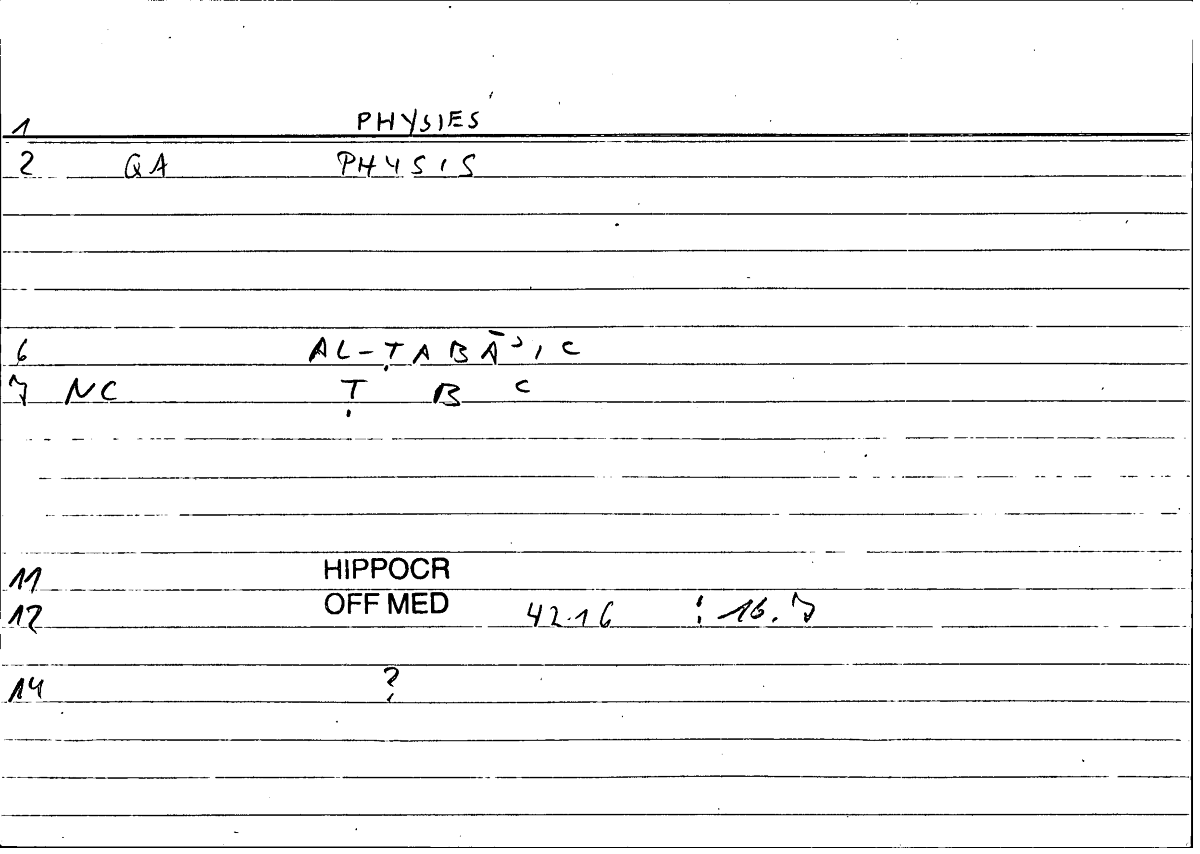 1 PHYSIES
2 QA PHYSIS
6 AL-ṬABĀʾIʿ
7 NC Ṭ B ʿ
11 HIPPOCR
12 OFF MED 42.16 : 16.7
14 ?